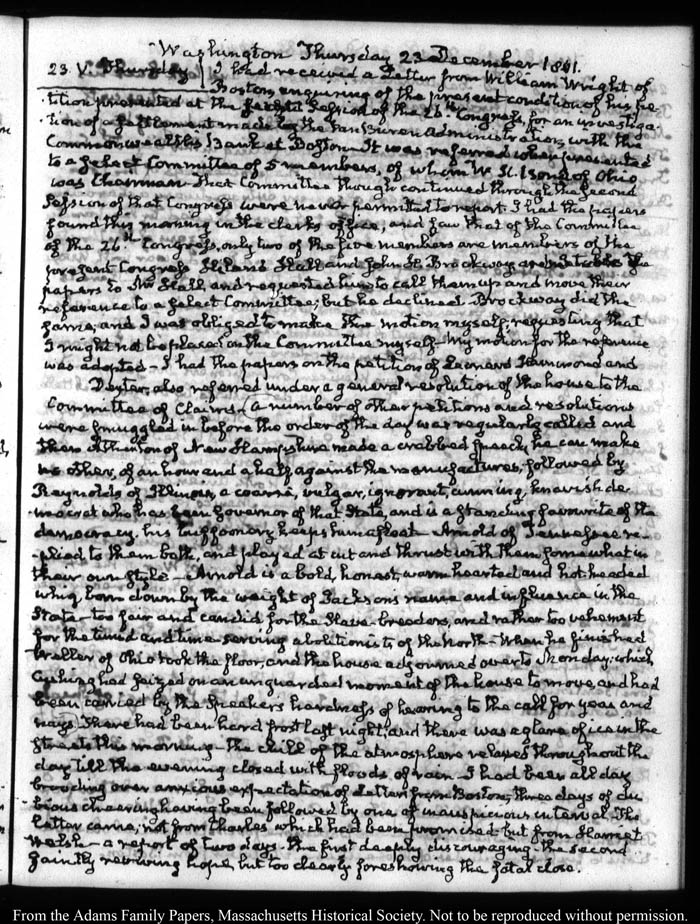 Washington Thursday 23 December 1841.
23. V. Thursday I had received a Letter from William Wright of
Boston, enquiring of the present condition of his pe-
tition presented at the Session of the 26th Congress, for an investiga-
tion of a settlement made by the Van Buren Administration, with the
Commonwealth's Bank at Boston. It was referred when presented
to a select Committee of 5 members, of whom W. K. Bond of Ohio
was Chairman. That Committee though continued through the second
Session of that Congress were never permitted to report. I had the papers
found this morning in the clerks office, and saw that of the Committee
of the 26th Congress, only two of the five members are members of the
present Congress Hiland Hall and John H. Brockway. I took the
papers to Mr Hall, and requested him to call them up and move their
reference to a select Committee; but he declined. Brockway did the
same; and I was obliged to make the motion myself; requesting that
I might not be placed on the Committee myself. My motion for the reference
was adopted – I had the papers on the petition of Leonard Hammond and
Dexter, also referred under a general resolution of the house to the
Committee of Claims – a number of other petitions and resolutions
were smuggled in before the order of the day was regularly called and
then Atherton of New Hampshire made a crabbed speech, he can make
no other, of an hour and a half against the manufactures, followed by
Reynolds of Illinois, a coarse, vulgar, ignorant, cunning, knavish de-
mocrat who has been Governor of that State, and is a standing favourite of the
democracy. his buffoonery keeps him afloat – Arnold of Tennessee re-
-plied to them both, and played at cut and thrust with them somewhat in
their own style – Arnold is a bold, honest, warm hearted and hot headed
whig, born down by the weight of Jackson's name and influence in the
State – too fair and candid for the Slave-breeders, and rather too vehement
for the timid and time-serving abolitionists of the North – When he finished
Weller of Ohio took the floor, and the house adjourned over to Monday; which
Cushing had seized on an unguarded moment of the house to move, and had
been carried by the Speakers hardness of hearing to the call for yeas and
nays. There had been hard frost last night; and there was a glare of ice in the
streets this morning – the chill of the atmosphere relaxed throughout the
day till the evening closed with floods of rain – I had been all day
brooding over anxious expectation of Letters from Boston, three days of du-
bious cheering having been followed by one of inauspicious interval. The
letter came, not from Charles which had been promised but from Harriet
Welsh – a report of two days. the first deeply discouraging. the second
faintly reviving hope, but too clearly foreshowing the fatal close.
From the Adams Family Papers, Massachusetts Historical Society. Not to be reproduced without permission.